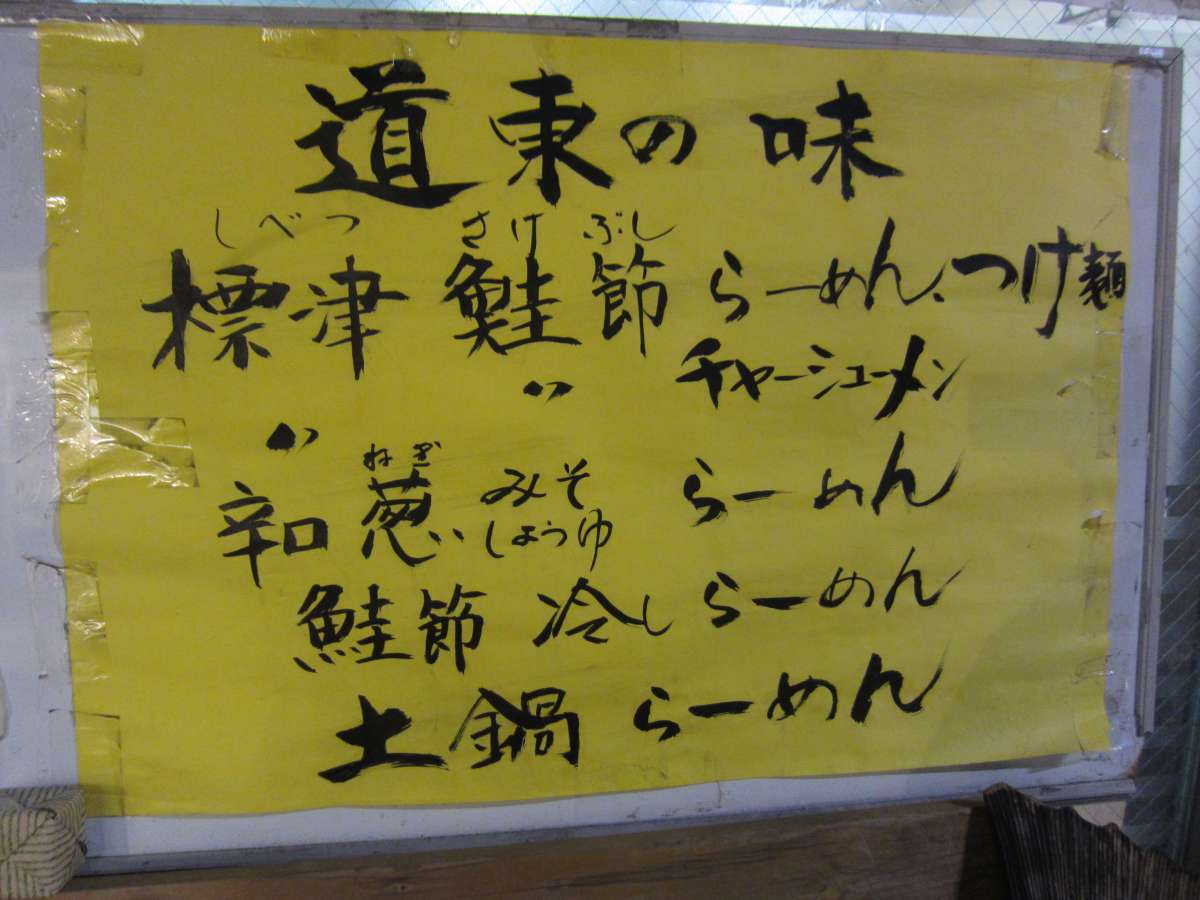 道東の味
しべつ さけ ぶし
標津 鮭節 らーめん、つけ麺
〃 チャーシューメン
〃
ねぎ
辛口 葱い みそ しょうゆ らーめん
鮭節 冷し らーめん
土鍋 らーめん